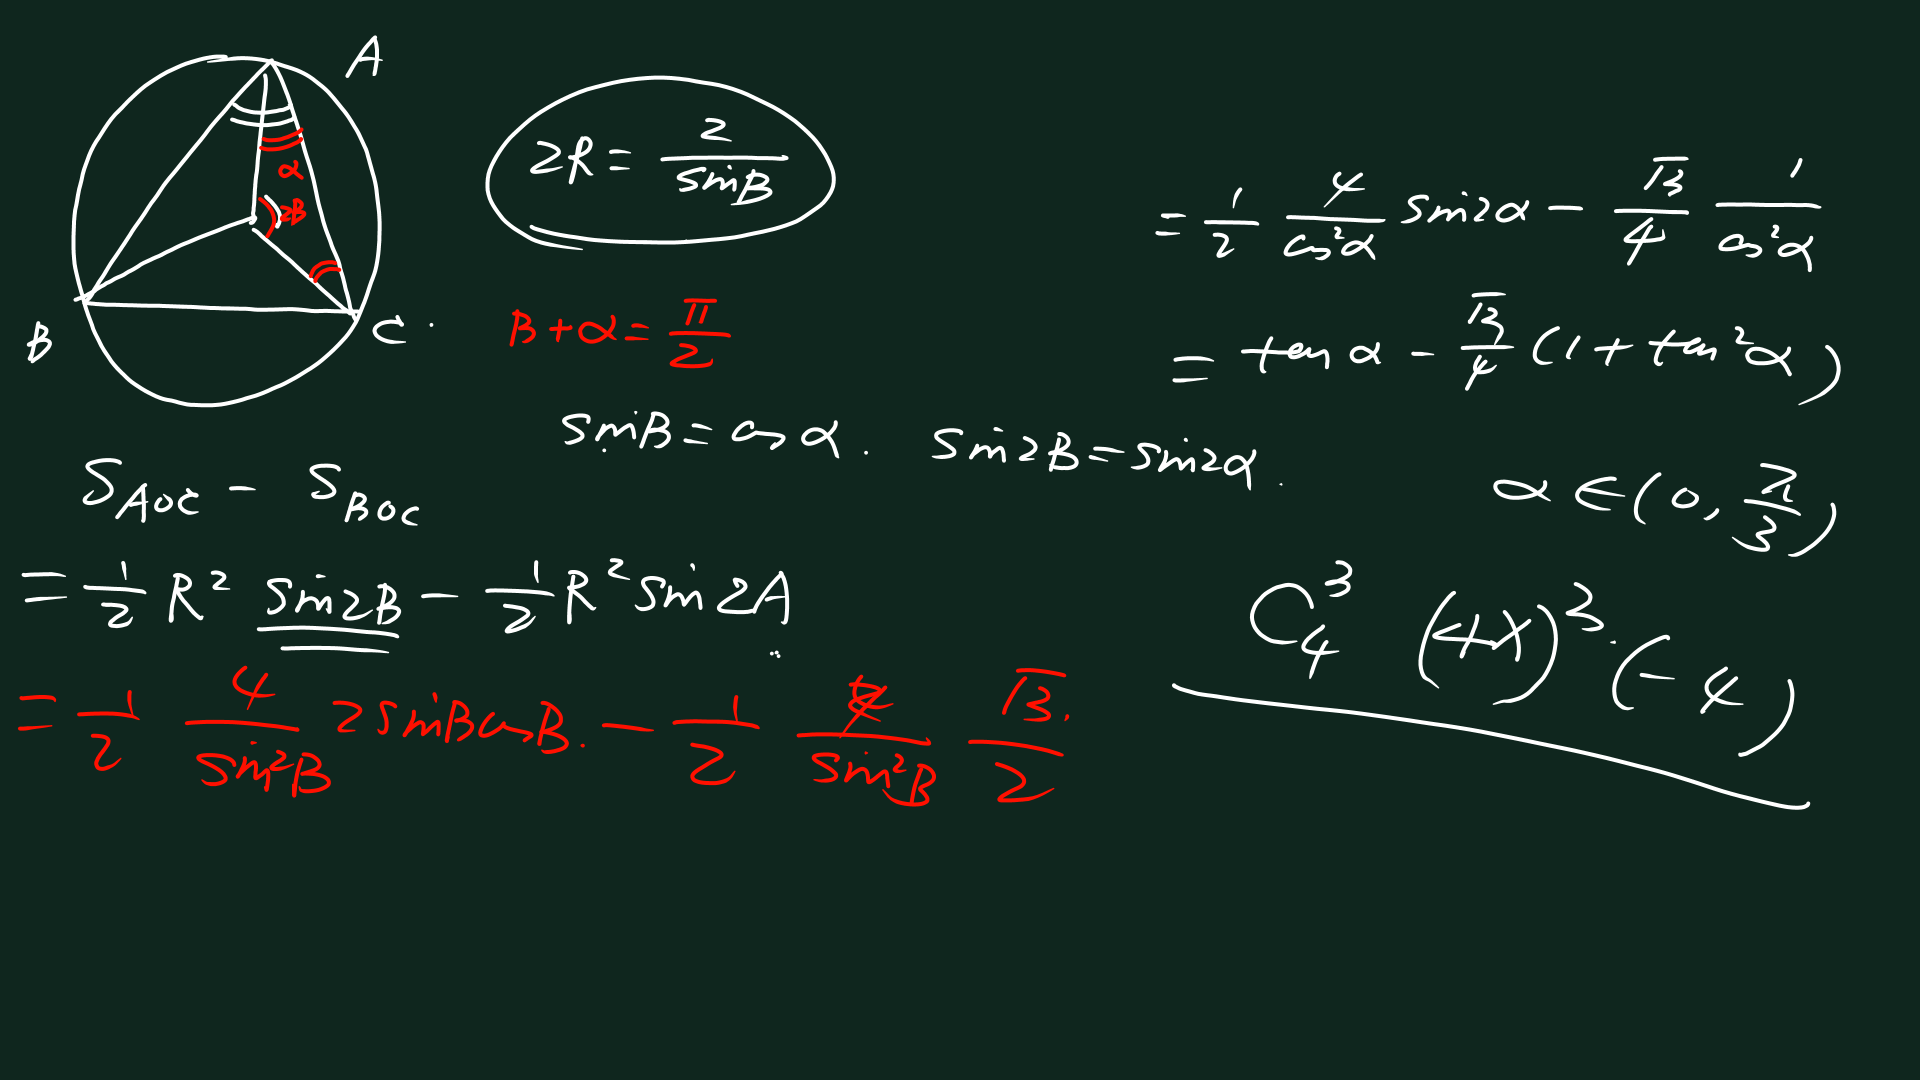 A
α
2B
B
C
2R = 2/sinB
B + α = π/2
sinB = cosα. sin2B = sin2α.
S_AOC - S_BOC
= 1/2 R² sin2B - 1/2 R² sin2A
= 1/2 4/sin²B 2sinBcosB. - 1/2 /sin²B √3/2
= 1/2 4/cos²α sin2α - √3/4 1/cos²α
= tanα - √3/4 (1 + tan²α)
α ∈ (0, π/3)
C₄³ (4x)³·(-4)